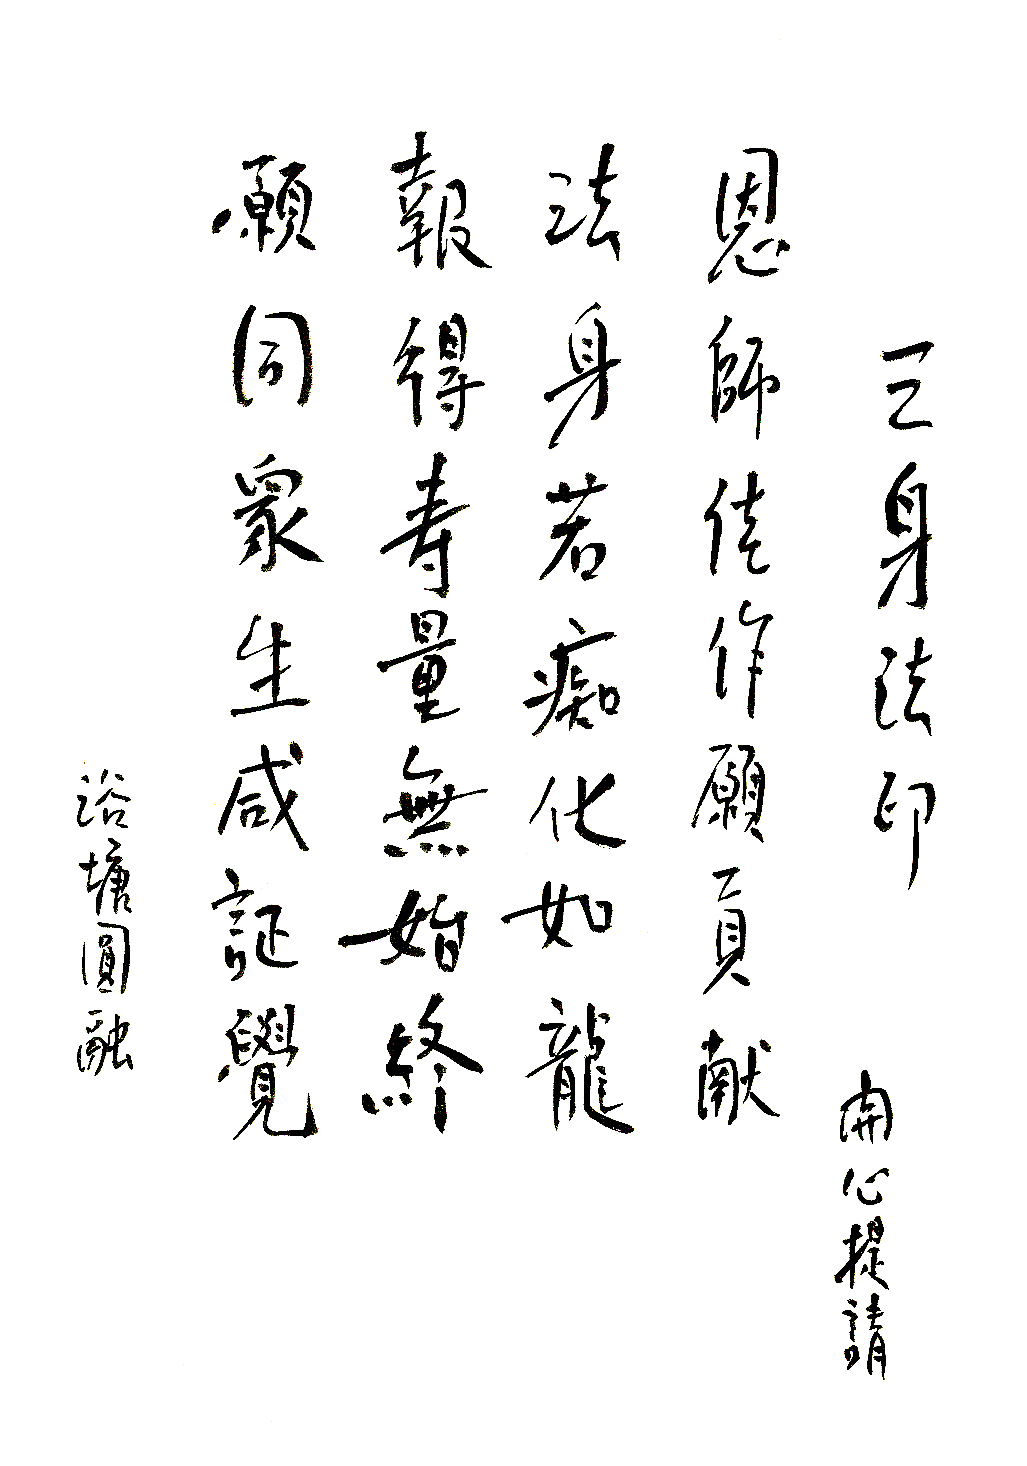 三身法印
開心提請
恩師佳作願貢献
法身若痴化如龍
報得寿量無始終
願同眾生咸証覺
浴塘圓融